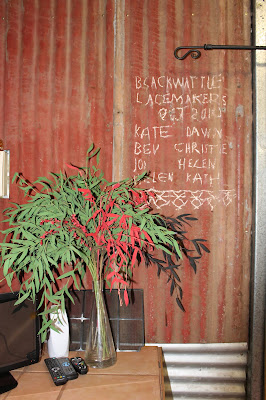 BLACKWATTLE
LACEMAKERS
OCT 2010
KATE DAWN
BEV CHRISTINE
JO HELEN
KATH